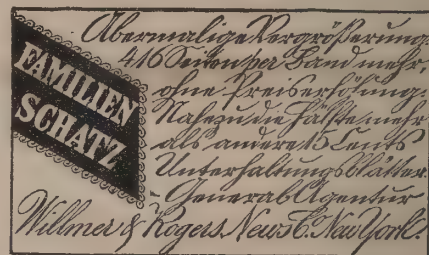 Abermalige Vergrößerung:
416 Seiten per Band mehr,
FAMILIEN
SCHATZ
ohne Preiserhöhung.
Nahezu die Hälfte mehr
als andere 15 Cents
Unterhaltungsblätter.
General Agentur
Willmer & Rogers News C. New York.